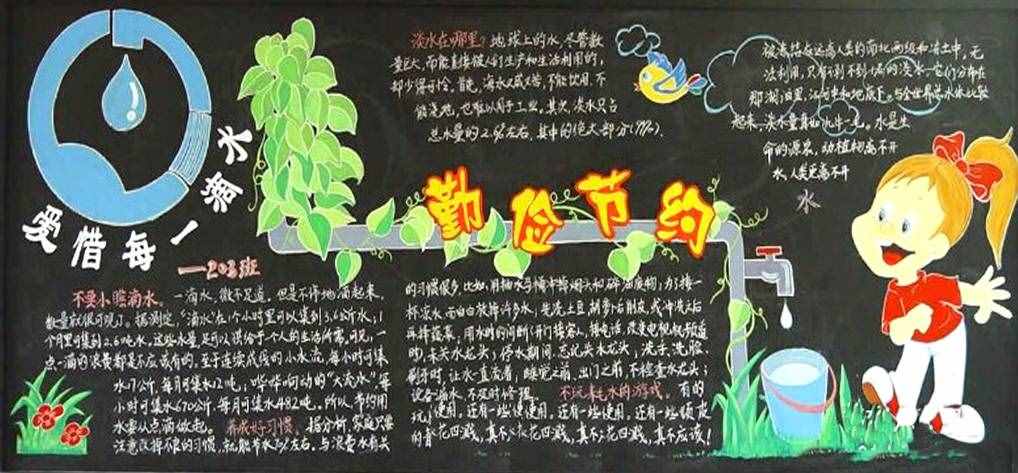 爱惜每一滴水
淡水在哪里?地球上的水,尽管数
量巨大,而能直接被人们生产和生活利用的,
却少得可怜。首先,海水又咸又苦,不能饮用,不
能浇地,也难以用于工业。其次,淡水只占
总水量的2.5%左右,其中的绝大部分(99%),
被冻结在远离人类的南北两极和冻土中,无
法利用,只有不到不1%的淡水它们分布在
那湖泊里、江河中和地底下。与全世界总水体比较
起来,淡水量真如九牛一毛。水是生
命的源泉,动植物离不开
水,人类更离不开
水
勤俭节约
一203班
不要小瞧滴水。一滴水,微不足道。但是不停地滴起来,
数量就很可观了。据测定,“滴水”在1个小时里可以集到3.6公斤水;1
个月里可集到2.6吨水。这些水量,足可以供给一个人的生活所需。可见,一
点一滴的浪费都是不应该有的。至于连续成线的小水流,每小时可集
水17公斤,每月可集水12吨;哗哗响动的“大流水”,每
小时可集水670公斤,每月可集水482吨。所以,节约用
水要从点滴做起。 养成好习惯。据分析,家庭只要
注意改掉不良的习惯,就能节水70%左右。与浪费水有关
的习惯很多,比如:用抽水马桶冲掉烟头和碎细废物;为了接一
杯凉水,而白白放掉许多水;先洗土豆、胡萝卜后削皮,或冲洗之后
再择蔬菜;用水时的间断(开门接客人,接电话,改变电视机频道
时),未关水龙头;停水期间,忘记关水龙头;洗手、洗脸、
刷牙时,让水一直流着;睡觉之前、出门之前,不检查水龙头;
设备漏水,不及时修理。 不玩耗水的游戏。有的
玩,使用,还有一些使使用,还有一些使用,还有一些顽皮
的音 花四溅,真不 花四溅,真不 花四溅,真不应该!